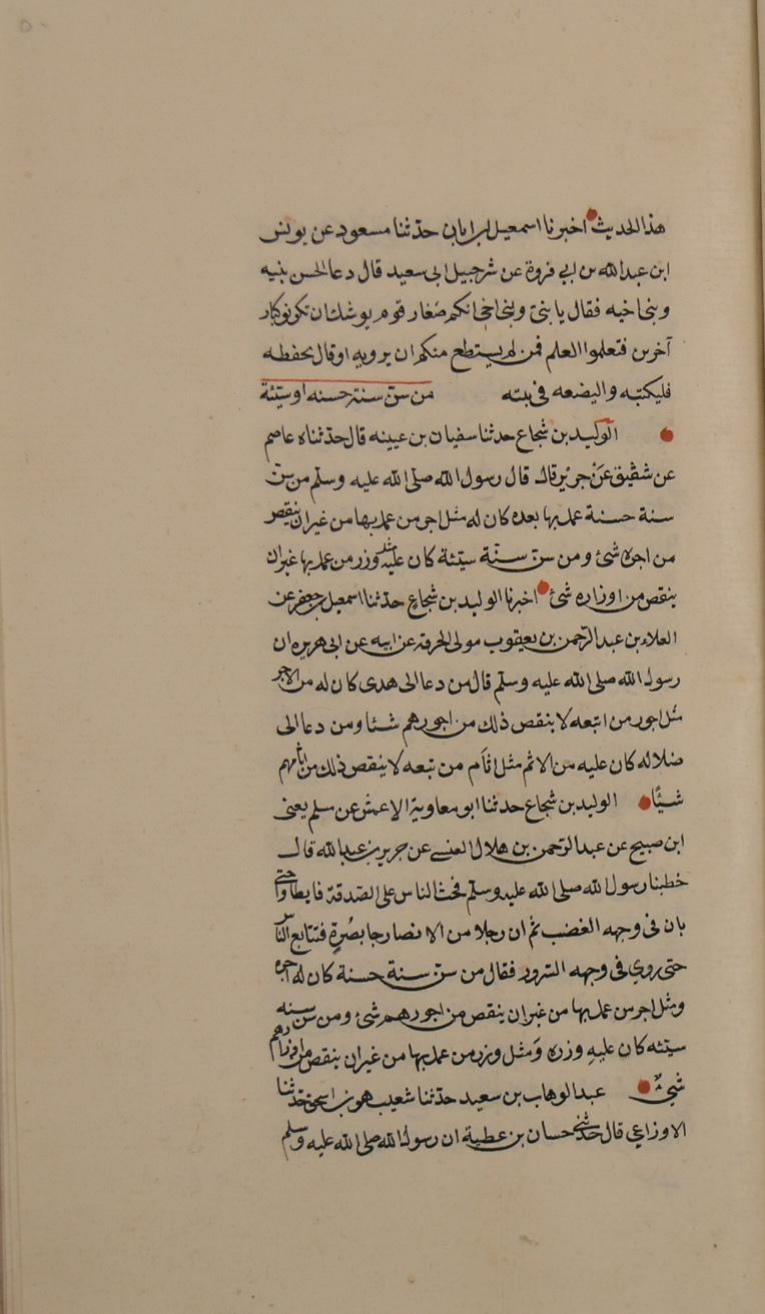 هذا الحديث اخبرنا اسمعيل بن ابان حدثنا مسعود عن يونس
ابن عبد الله بن ابي فروة عن شرحبيل ابى سعيد قال دعا الحسن بنيه
وبنى اخيه فقال يا بنىّ وبنى اخى انكم صغار قوم يوشك ان تكونوا كبار
آخرين فتعلموا العلم فمن لم يستطع منكم ان يرويه او قال يحفظه
فليكتبه واليضعه فى بيته من سنّ سنة حسنه او سيّئة
الوليد بن شجاع حدثنا سفيان بن عيينه قال حدّثناه عاصم
عن شقيق عَنْ جرير قال قال رسول الله صلى الله عليه وسلّم من سنّ
سنة حسنة عمل بها بعده كان له مثل اجر من عمل بها من غير ان ينقص
من اجره شئ ومن سنّ سنّة سيّئة كان عليه مثل وزر من عمل بها غير ان
ينقص من اوزاره شئ اخبرنا الوليد بن شجاع حدّثنا اسمعيل بن جعفر عن
العلاء بن عبد الرّحمن بن يعقوب مولى الحرقة عن ابيه عن ابى هريره ان
رسول الله صلى الله عليه وسلّم قال من دعا الى هدى كان له من الاجر
مثل اجور من اتبعه لا ينقص ذلك من اجورهم شئا ومن دعا الى
ضلاله كان عليه من الاثم مثل اثام من تبعه لا ينقص ذلك من اثامهم
شيًا الوليد بن شجاع حدثنا ابو معاوية الاعمش عن مسلم يعنى
ابن صبيح عن عبد الرّحمن بن هلال العبسى عن جرير بن عبد الله قال
خطبنا رسول الله صلى الله عليه وسلّم فحث الناس على الصّدقة فابطاوا حتّى
بان فى وجهه الغضب ثم ان رجلا من الانصار جا بصُرةٍ فتتابع النّاس
حتى روى فى وجهه السّرور فقال من سنّ سنة حسنة كان له اجره
ومثل اجر من عمل بها من غير ان ينقص من اجورهم شئ ومن سن سنه
سيّئه كان عليه وزره وَمثل وزر من عمل بها من غير ان ينقص من اوزارهم
شئٌ عبد الوهاب بن سعيد حدّثنا شعيب هو بن اسحق حدّثنا
الاوزاعى قال حدّثنى حسان بن عطية ان رسول الله صلى الله عليه وسلّم